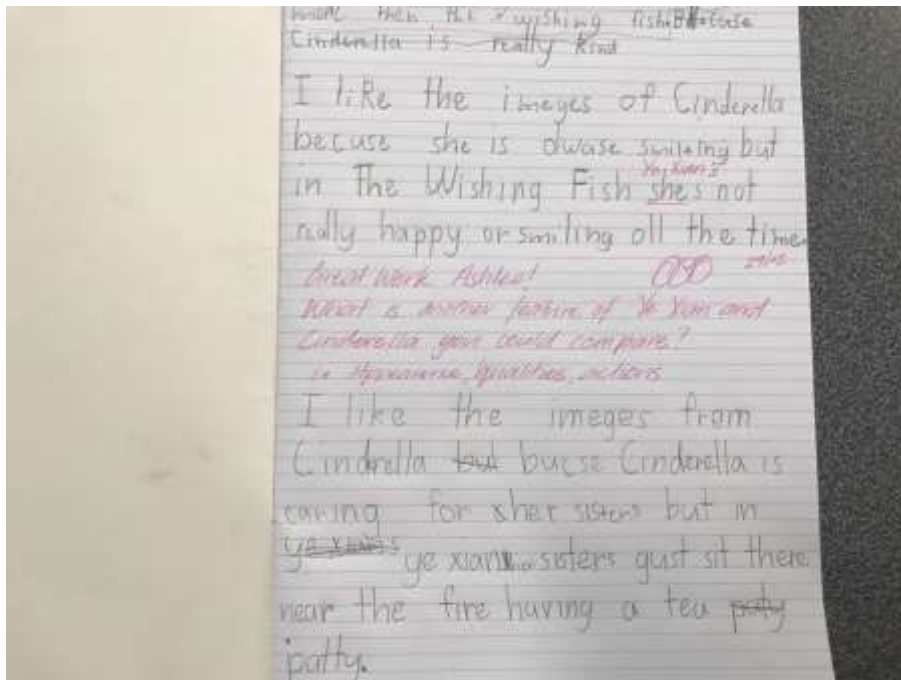 more then the wishing fish. Because
Cinderella is really kind
I like the imeges of Cinderella
becuse she is olwase smileing but
Ye Xian's
in The Wishing Fish she's not
really happy or smiling oll the time.
Great Work Ashlea!
What is another feature of Ye Xian and
Cinderella you could compare?
ie Appearance, qualities, actions
I like the imeges from
Cindrella but bucse Cinderella is
caring for sher sisters but in
ye xian's
ye xian sisters gust sit there
near the fire having a tea party
patty.